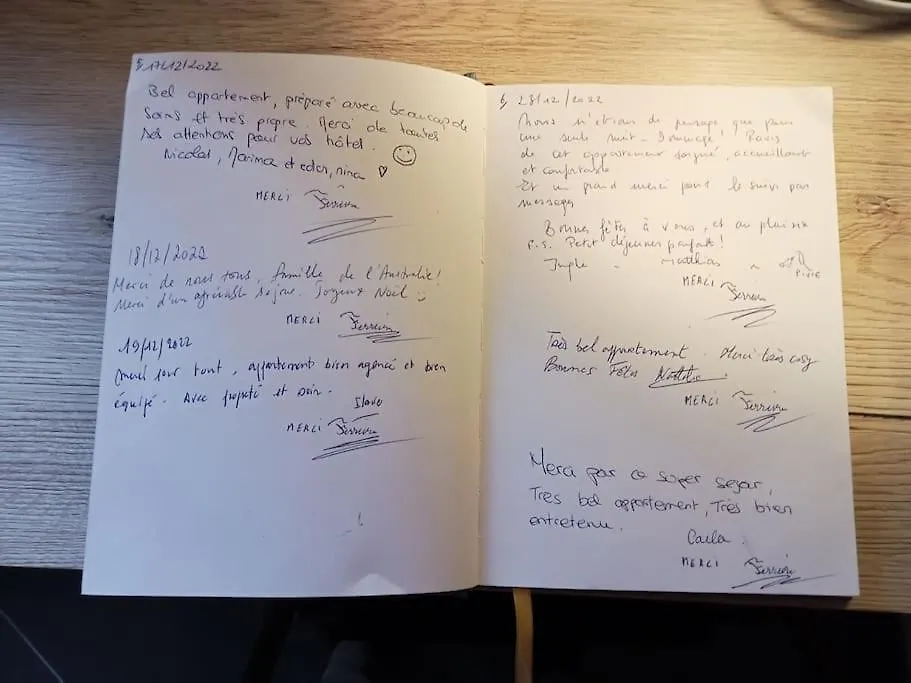 17/12/2022
Bel appartement, préparé avec beaucoup de
soins et très propre. Merci de toutes
ses attentions pour vos hôtel.
Nicolas, Marina et eden, nina
MERCI Ferreira
18/12/2022
Merci de nous tous, famille de l'Australie!
Merci d'un agréable séjour. Joyeux Noël
MERCI Ferreira
19/12/2022
pour tout, appartement bien agencé et bien
équipé. Avec propreté et soin.
MERCI Ferreira
28/12/2022
Nous n'étions de passage que pour
une seule nuit - Dommage! Ravis
de cet appartement soigné, accueillant
et confortable
Et un grand merci pour le suivi par
messages
Bonnes fêtes à vous, et au plaisir
P.S. Petit déjeuner parfait!
Matthias
MERCI Ferreira
Très bel appartement. Merci très cosy
Bonnes Fêtes Nathalie
MERCI Ferreira
Merci par ce super sejar,
Tres bel appartement, Très bien
entretenu.
Carla.
MERCI Ferreira